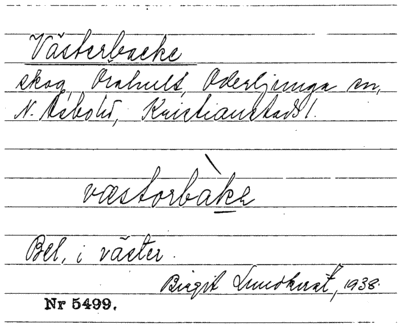 Västerbacke
skog, Orahult, Oderljunga sn,
N. Åsbohd, Kristianstads l.
væstorbàkə
Bel. i väster.
Birgit Lundkvist, 1938.
Nr 5499.